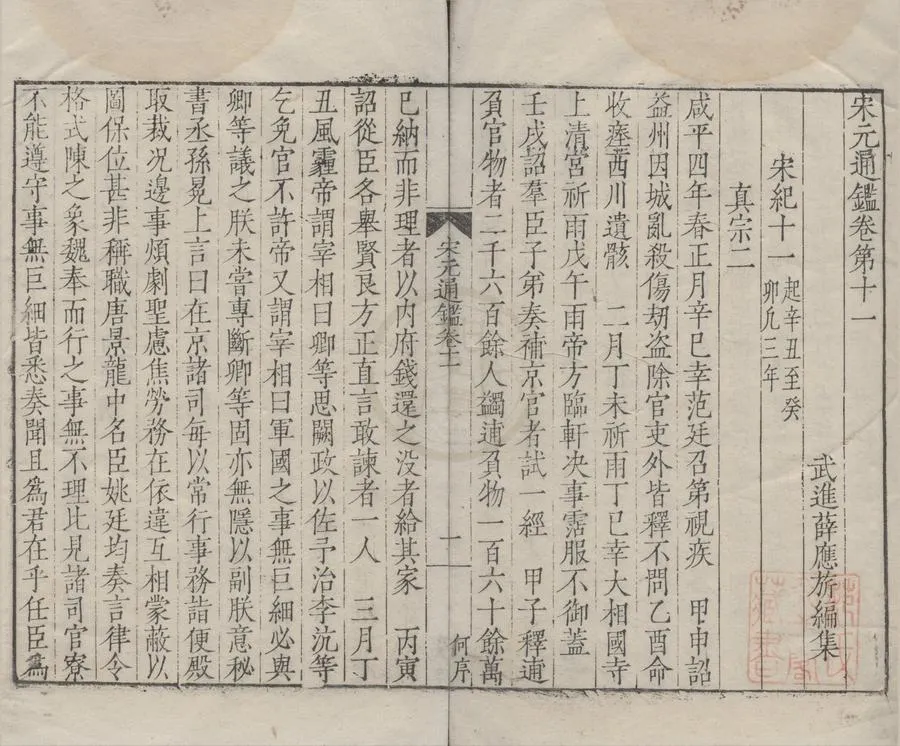 宋元通鑑卷第十一
武進薛應旂編集
宋紀十一 起辛丑至癸
卯凡三年
真宗二
咸平四年春正月辛巳幸范廷召第視疾 甲申詔
益州因城亂殺傷劫盜除官吏外皆釋不問乙酉命
收瘞西川遺骸 二月丁未祈雨丁巳幸大相國寺
上清宮祈雨戊午雨帝方臨軒決事霑服不御蓋
壬戌詔羣臣子弟奏補京官者試一經 甲子釋逋
負官物者二千六百餘人蠲逋負物一百六十餘萬
宋元通鑑卷十一
一
何序
已納而非理者以内府錢還之没者給其家 丙寅
詔從臣各舉賢良方正直言敢諫者一人 三月丁
丑風霾帝謂宰相曰卿等思闕政以佐予治李沆等
乞免官不許帝又謂宰相曰軍國之事無巨細必與
卿等議之朕未嘗專斷卿等固亦無隱以副朕意秘
書丞孫冕上言曰在京諸司每以常行事務詣便殿
取裁况邊事煩劇聖慮焦勞務在依違互相蒙蔽以
圖保位甚非稱職唐景龍中名臣姚廷均奏言律令
格式陳之象魏奉而行之事無不理比見諸司官寮
不能遵守事無巨細皆悉奏聞且爲君在乎任臣爲